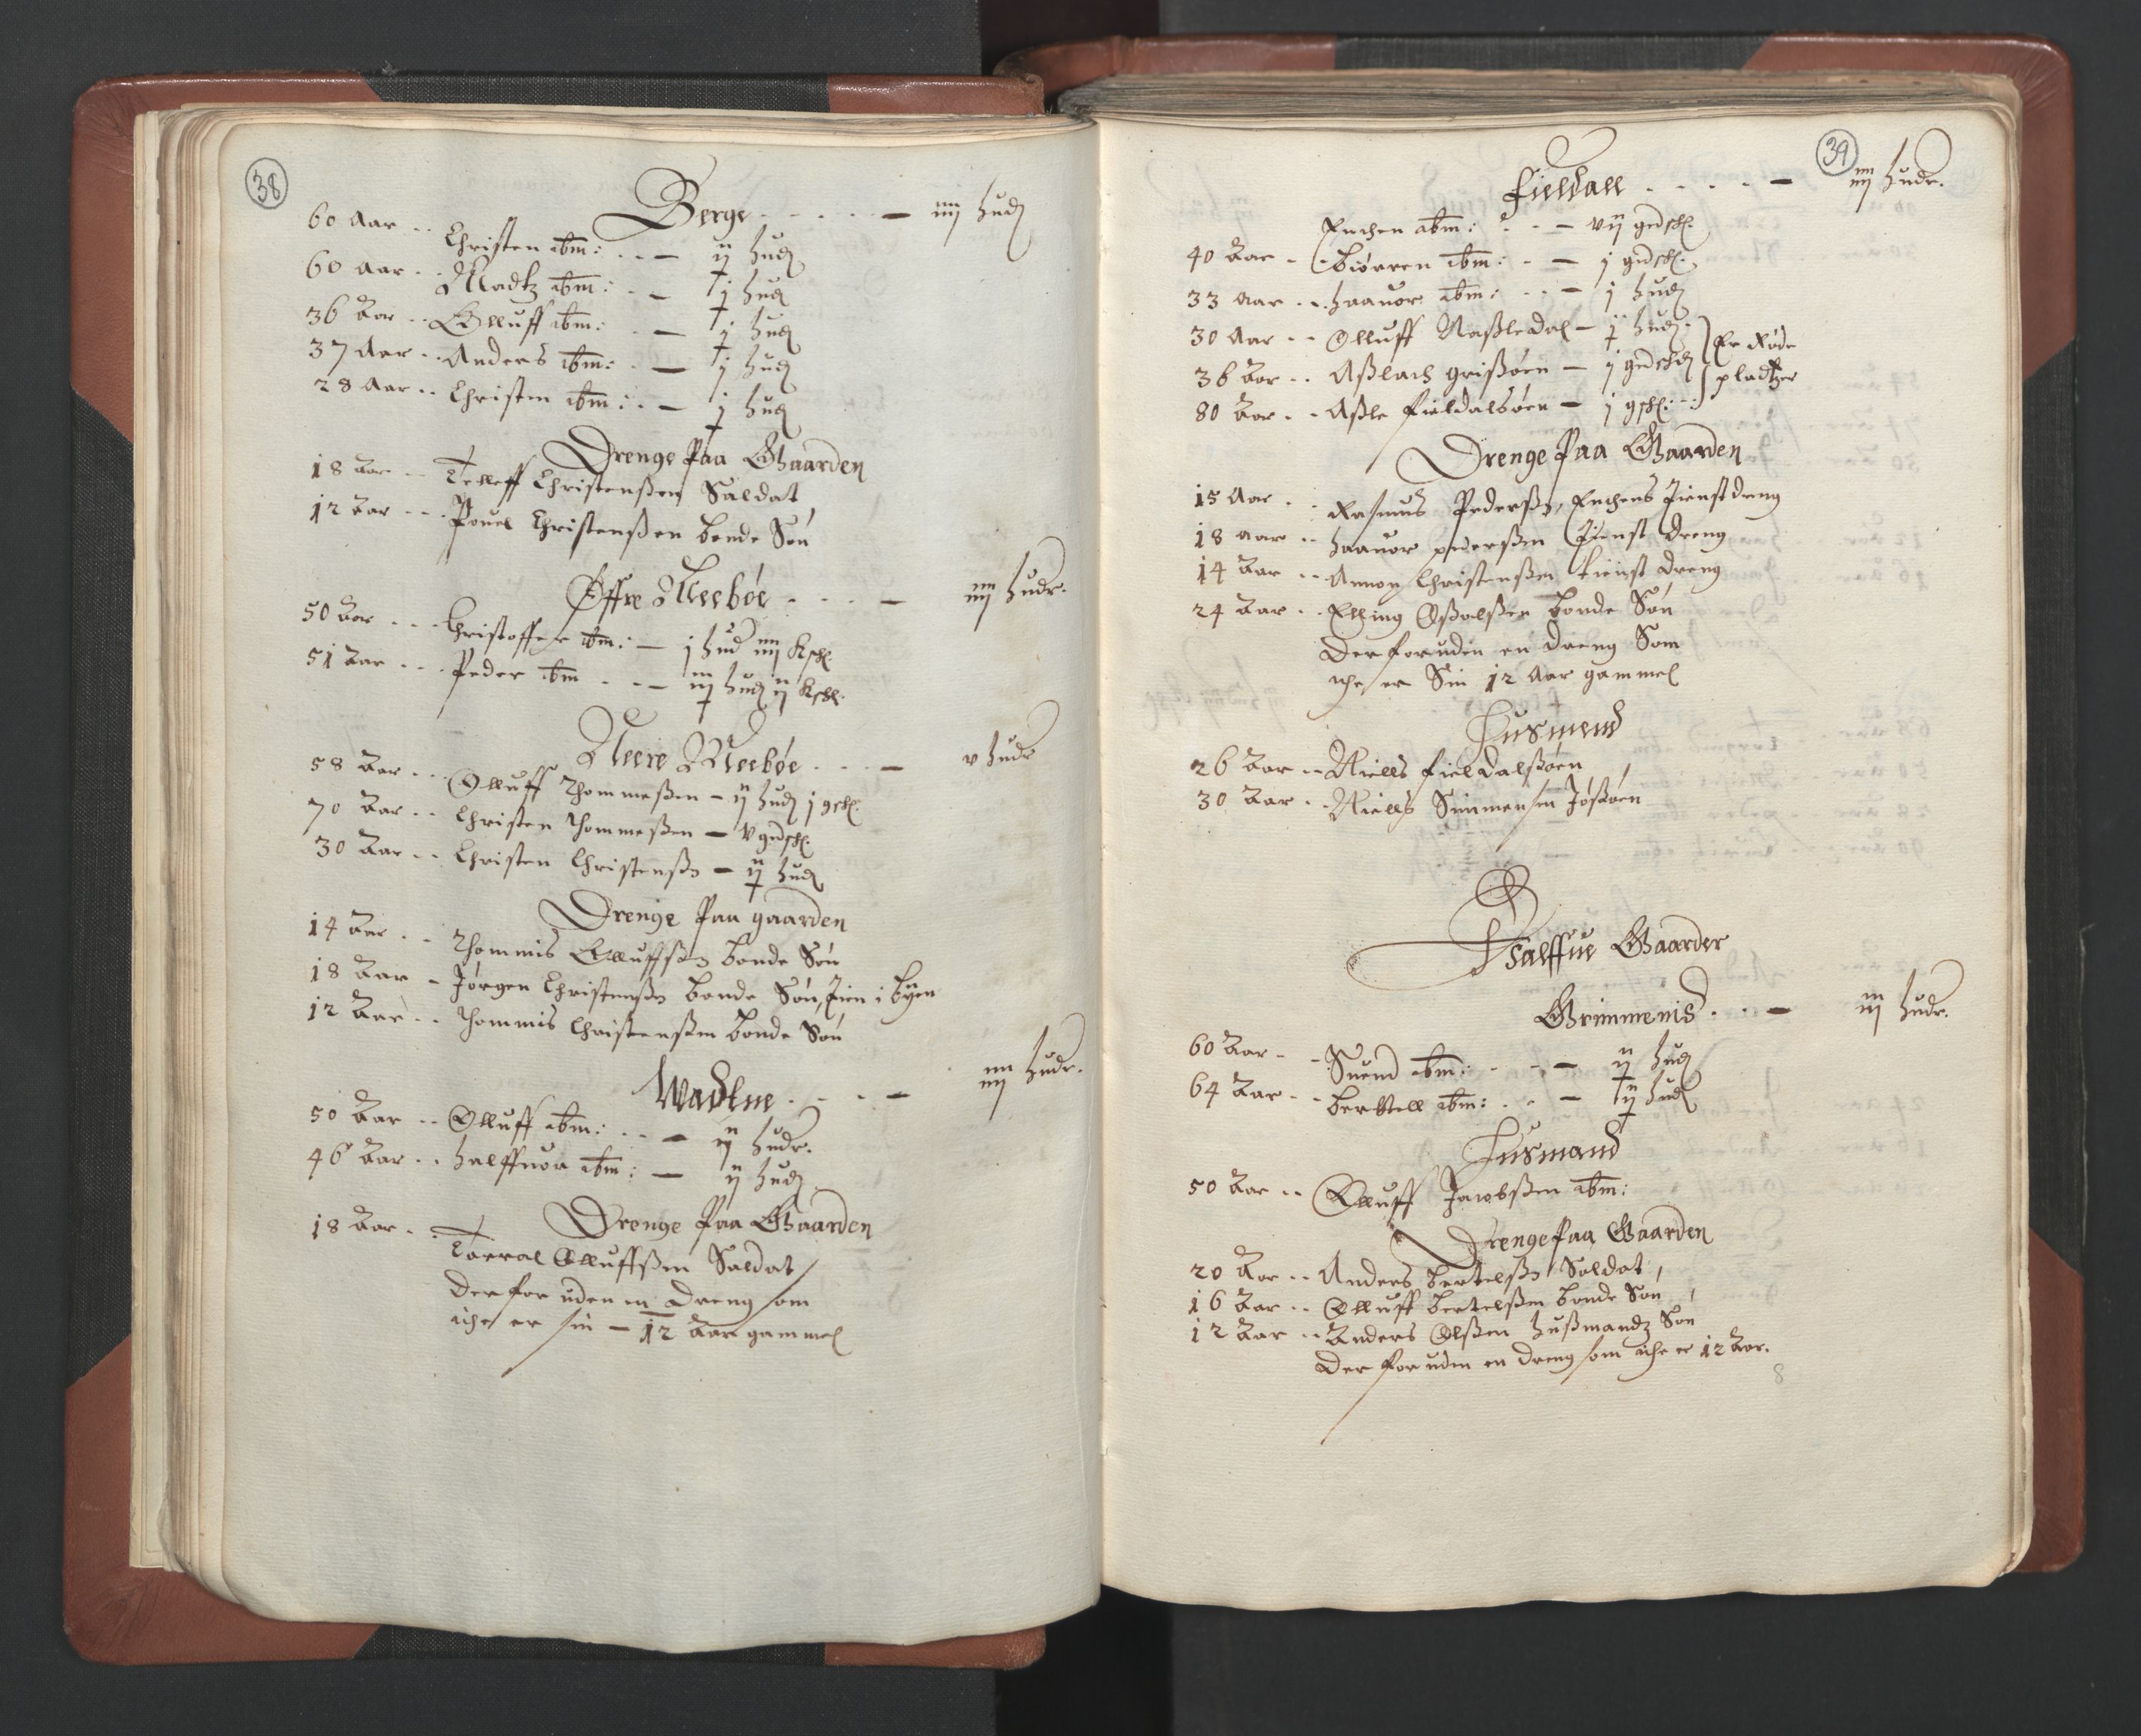 38
Berge - - - - - — iiij hud
60 Aar - - Christen ibm: - - — ij hud
60 Aar - - Madtz ibm: - - — j hud
36 Aar - - Olluff ibm: - — j hud
37 Aar - - Anders ibm: - — j hud
28 Aar - - Christen ibm: - — j hud
Drenge Paa Gaarden
18 Aar - - Telleff Christensen Saldat
12 Aar - - - Pouel Christenßen bonde Søn
Øffre Meebøe - - - - — iiij hudr.
50 Aar - - - Christoffer ibm: — j hud iiij kschl.
51 Aar - - - Peder ibm - - — iij hud ij kschl.
Neere Meebøe - - - — v hudr
58 Aar - - - Olluff Thommeßen — ij hud j gschl.
70 Aar - - Christen Thommeßen — v gedschl.
30 Aar - - Christen Christenß — ij hud
Drenge Paa gaarden
14 Aar - - Thommis Olluffß bonde Søn
18 Aar - Jørgen Christenß bonde Søn, Tien i byen
12 Aar - - Thommis Christenßen bonde Søn
Wadtne - - - - — iiij hudr.
50 Aar - - Olluff ibm: - - — ij hudr.
46 Aar - - halffuor ibm: — ij hud
Drenge Paa Gaarden
18 Aar - - Torral Olluffßen Saldat
Der for uden en Dreng som
iche er sin — 12 Aar gammel
39
Fieldall - - - - - — iiij hudr.
Enchen ibm: - - - — vij gedschl.
40 Aar - - Biørren ibm: - — j gedschl.
33 Aar - - haauor ibm: - - — j hud
30 Aar - - Olluff Naßledal — j hud
36 Aar - - Aßlach Grißøen — j gedschl
80 Aar - - Aßle Fieldalsøen — j gschl: -
Er Røde
pladtzer
Drenge Paa Gaarden
15 Aar - - Rasmus Pederß, Enchens Tienst dreng
18 aar - - haauor pedersen Tienst Dreng
14 Aar - - Annon Christenßen tienst dreng
24 Aar - - Elling Oßalßen bonde Søn
Der foruden en dreng Som
iche er Sin 12 Aar gammel
Husmend
26 Aar - - Niells Fieldalßøen
30 Aar - - Niells Simmensen Jößøen
Halffue Gaarder
Grimmenis - - - — iij hudr.
60 Aar - - Suend ibm: - - - — ij hud
64 Aar - - berttell ibm: - - — ij hud
Husmand
50 Aar - - Olluff Jacobßen ibm:
Drenge Paa Gaarden
20 Aar - - Anders bertelß Saldat
16 Aar - - Olluff bertelßen bonde Søn
12 Aar - - Anders Olßen hußmandz Søn
Der for uden en dreng som iche er 12 Aar.
8